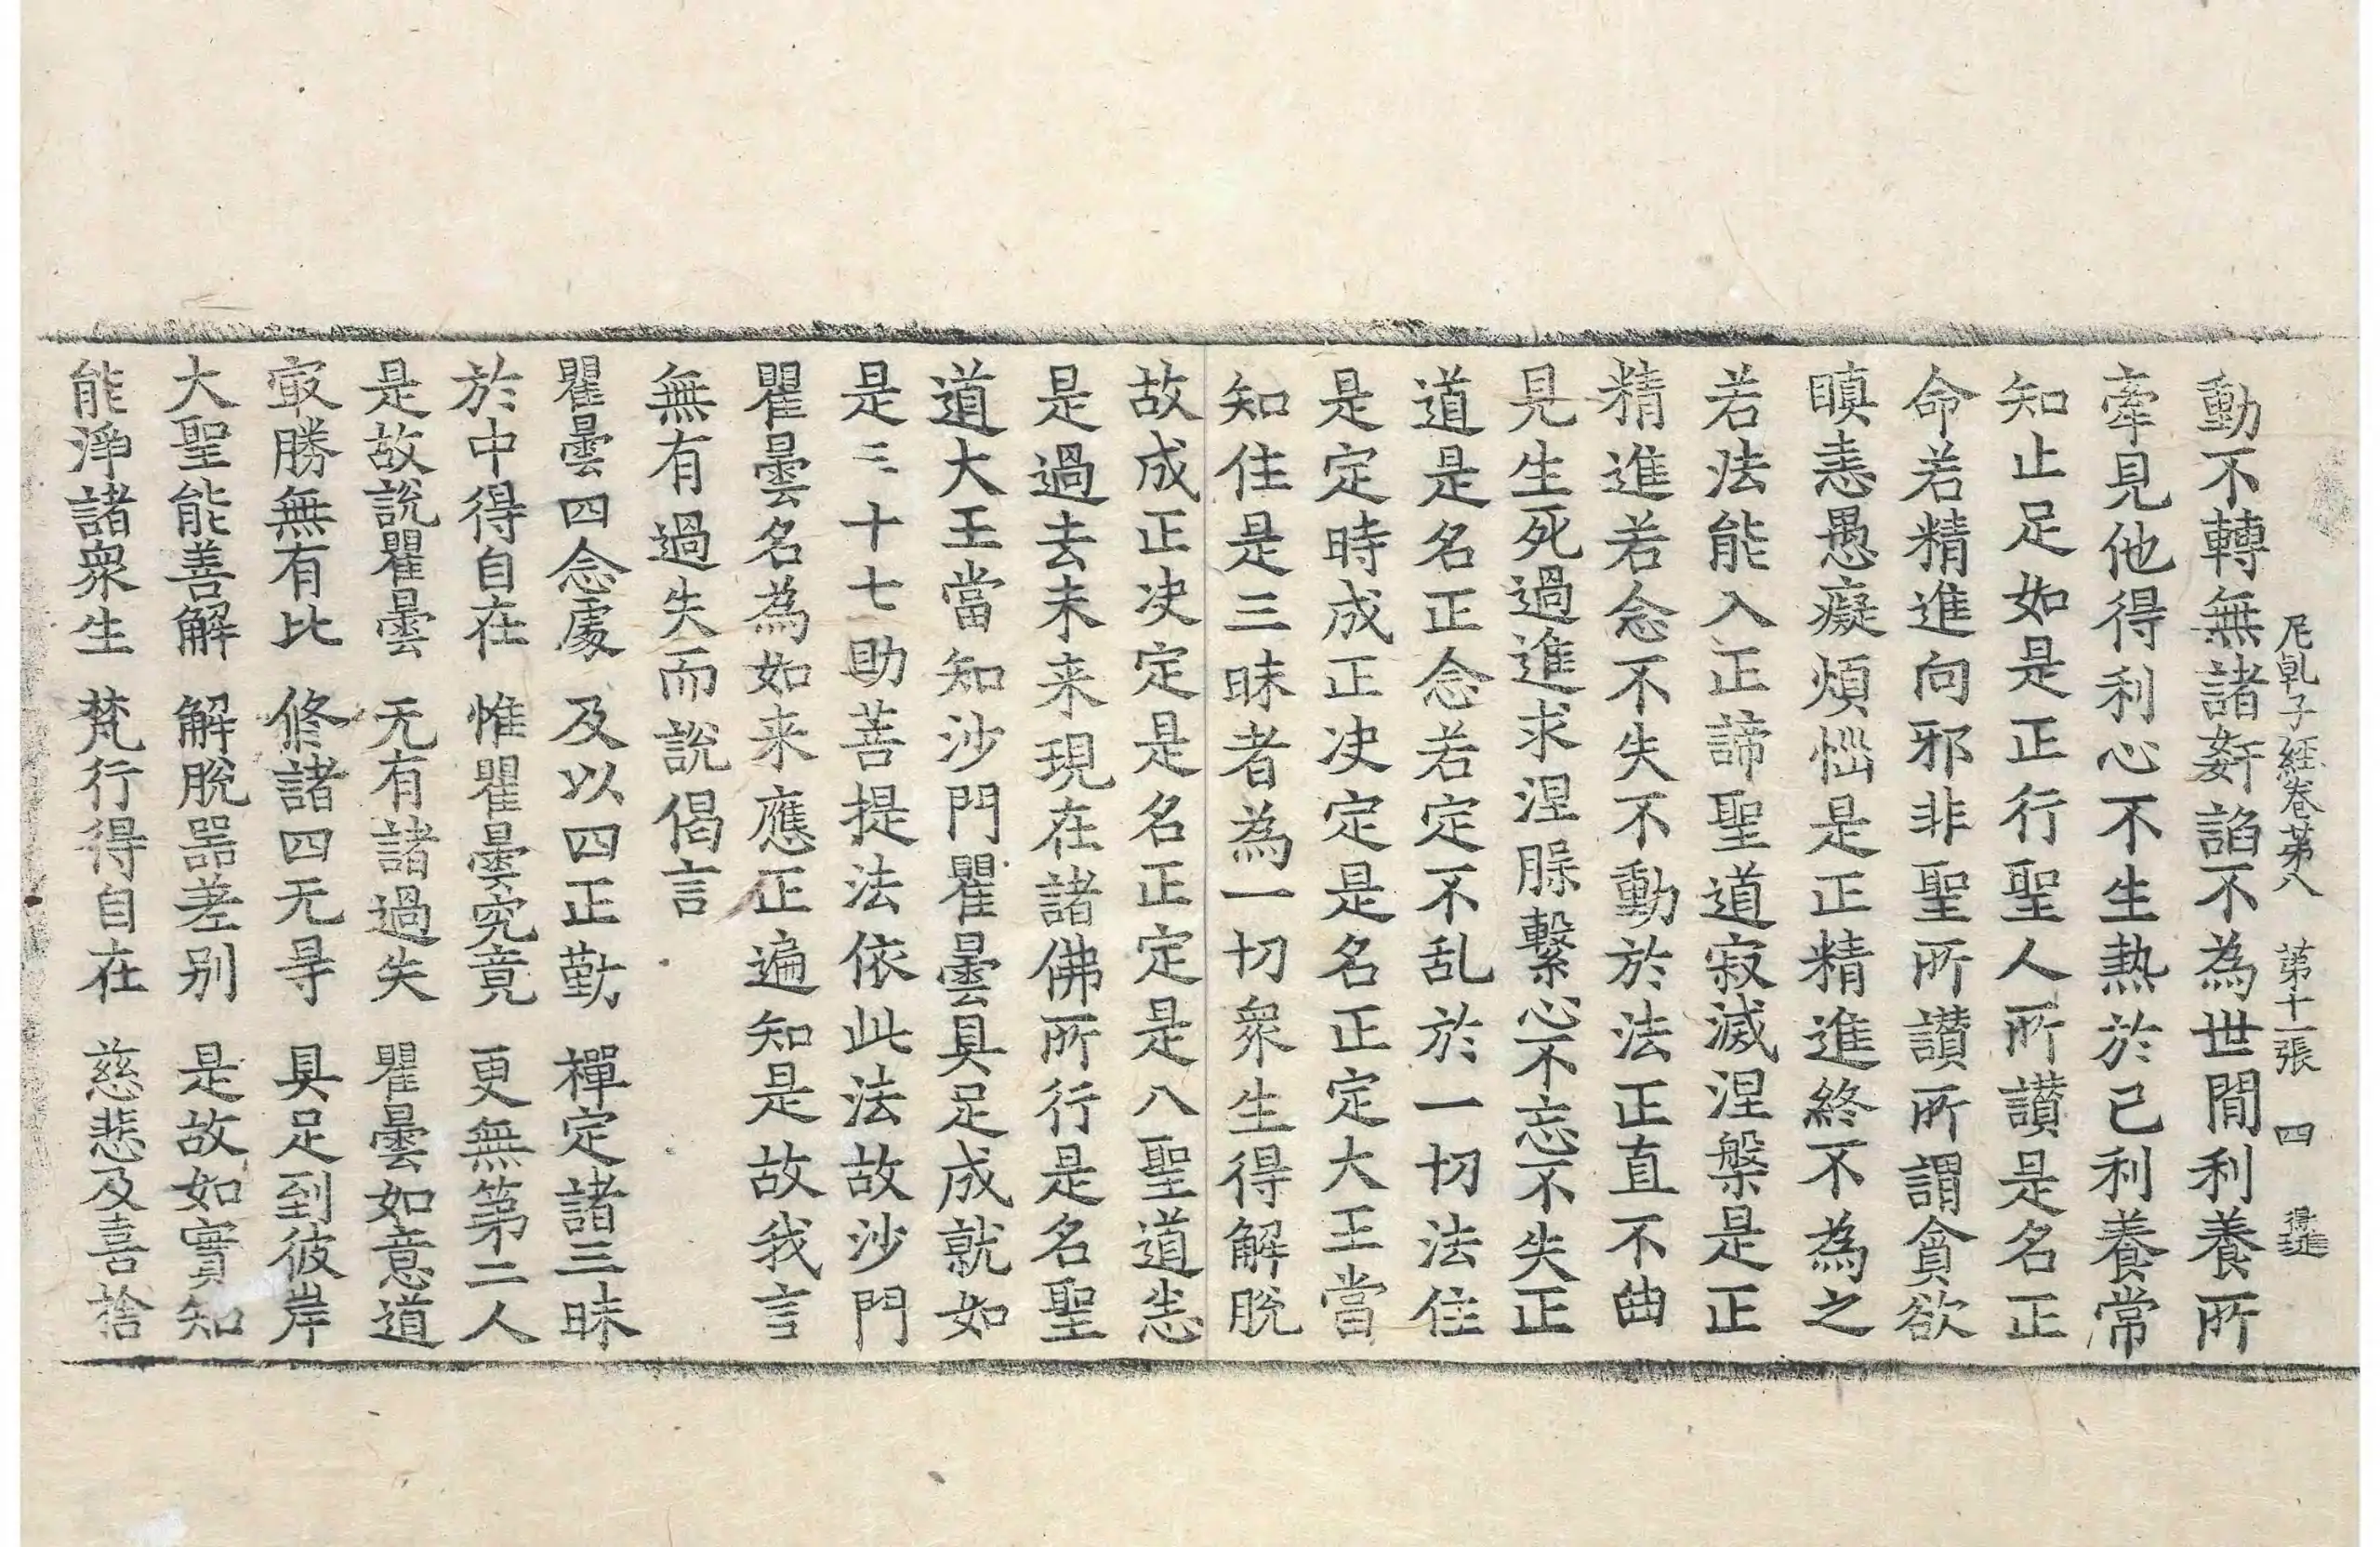 尼乹子経卷苐八 苐十一張 四
動不轉無諸姧諂不為世間利養所
牽見他得利心不生熱於己利養常
知止足如是正行聖人所讃是名正
命若精進向邪非聖所讃所謂貪欲
瞋恚愚癡煩惱是正精進終不為之
若法能入正諦聖道寂滅涅槃是正
精進若念不失不動於法正直不曲
見生死過進求涅槃繫心不忘不失正
道是名正念若定不乱於一切法住
是定時成正决定是名正定大王當
知住是三昧者為一切衆生得解脫
故成正决定是名正定是八聖道悉
是過去未来現在諸佛所行是名聖
道大王當知沙門瞿曇具足成就如
是三十七助菩提法依此法故沙門
瞿曇名為如来應正遍知是故我言
無有過失而說偈言
瞿曇四念處 及以四正勤 禪定諸三昧
於中得自在 惟瞿曇究竟 更無第二人
是故說瞿曇 无有諸過失 瞿曇如意道
冣勝無有比 修諸四无㝵 具足到彼岸
大聖能善解 解脫器差别 是故如實知
能淨諸衆生 梵行得自在 慈悲及喜捨